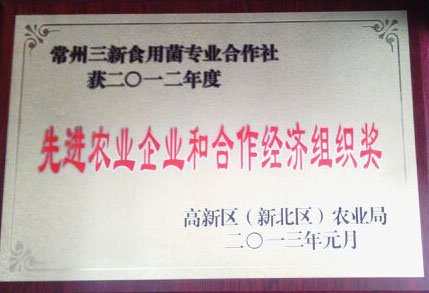 常州三新食用菌专业合作社
获二〇一二年度
先进农业企业和合作经济组织奖
高新区(新北区)农业局
二〇一三年元月